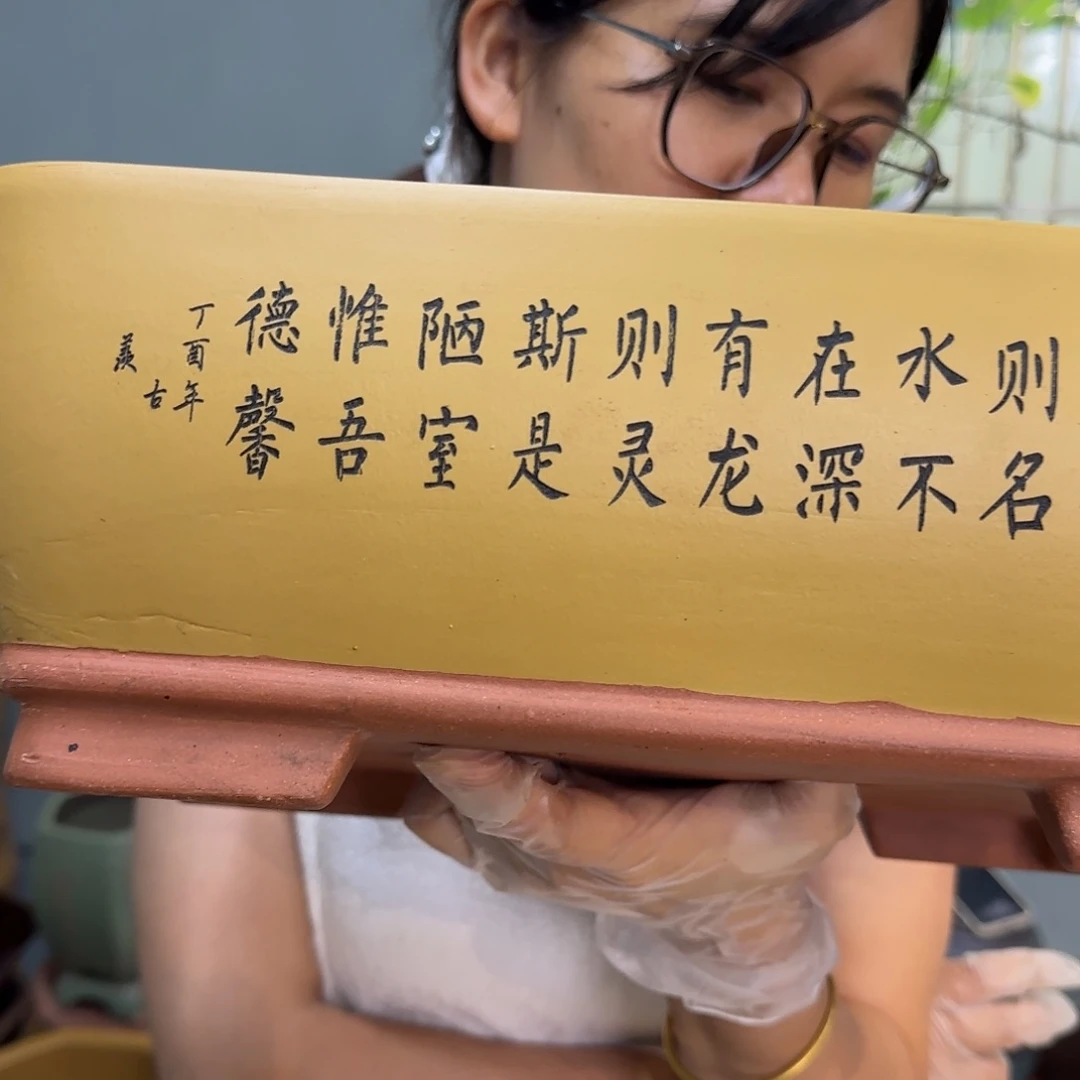 则名
水不
在深
有龙
则灵
斯是
陋室
惟吾
德馨
丁酉年
古